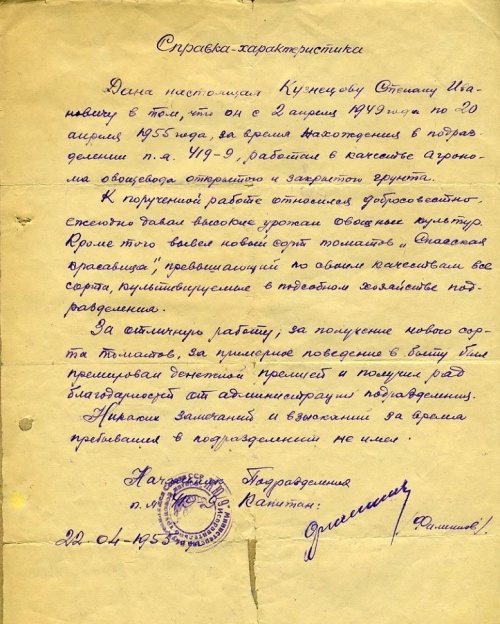 Справка-характеристика
Дана настоящая Кузнецову Степану Ива-
новичу в том, что он с 2 апреля 1949 года по 20
апреля 1955 года, за время нахождения в подраз-
делении п.я. 419-9, работал в качестве Агроно-
ма овощевода открытого и закрытого грунта.
К порученной работе относился добросовестно,
ежегодно давал высокие урожаи овощных культур.
Кроме того вывел новый сорт томатов „Спасская
красавица", превышающий по своим качествам все
сорта, культивируемые в подсобном хозяйстве под-
разделения.
За отличную работу, за получение нового сор-
та томатов, за примерное поведение в быту был
премирован денежной премией и получил ряд
благодарностей от администрации подразделения.
Никаких замечаний и взысканий за время
пребывания в подразделении не имел.
Начальник Подразделения
п.я. 419-9 Капитан:
(Филиппов).
22-04-1955